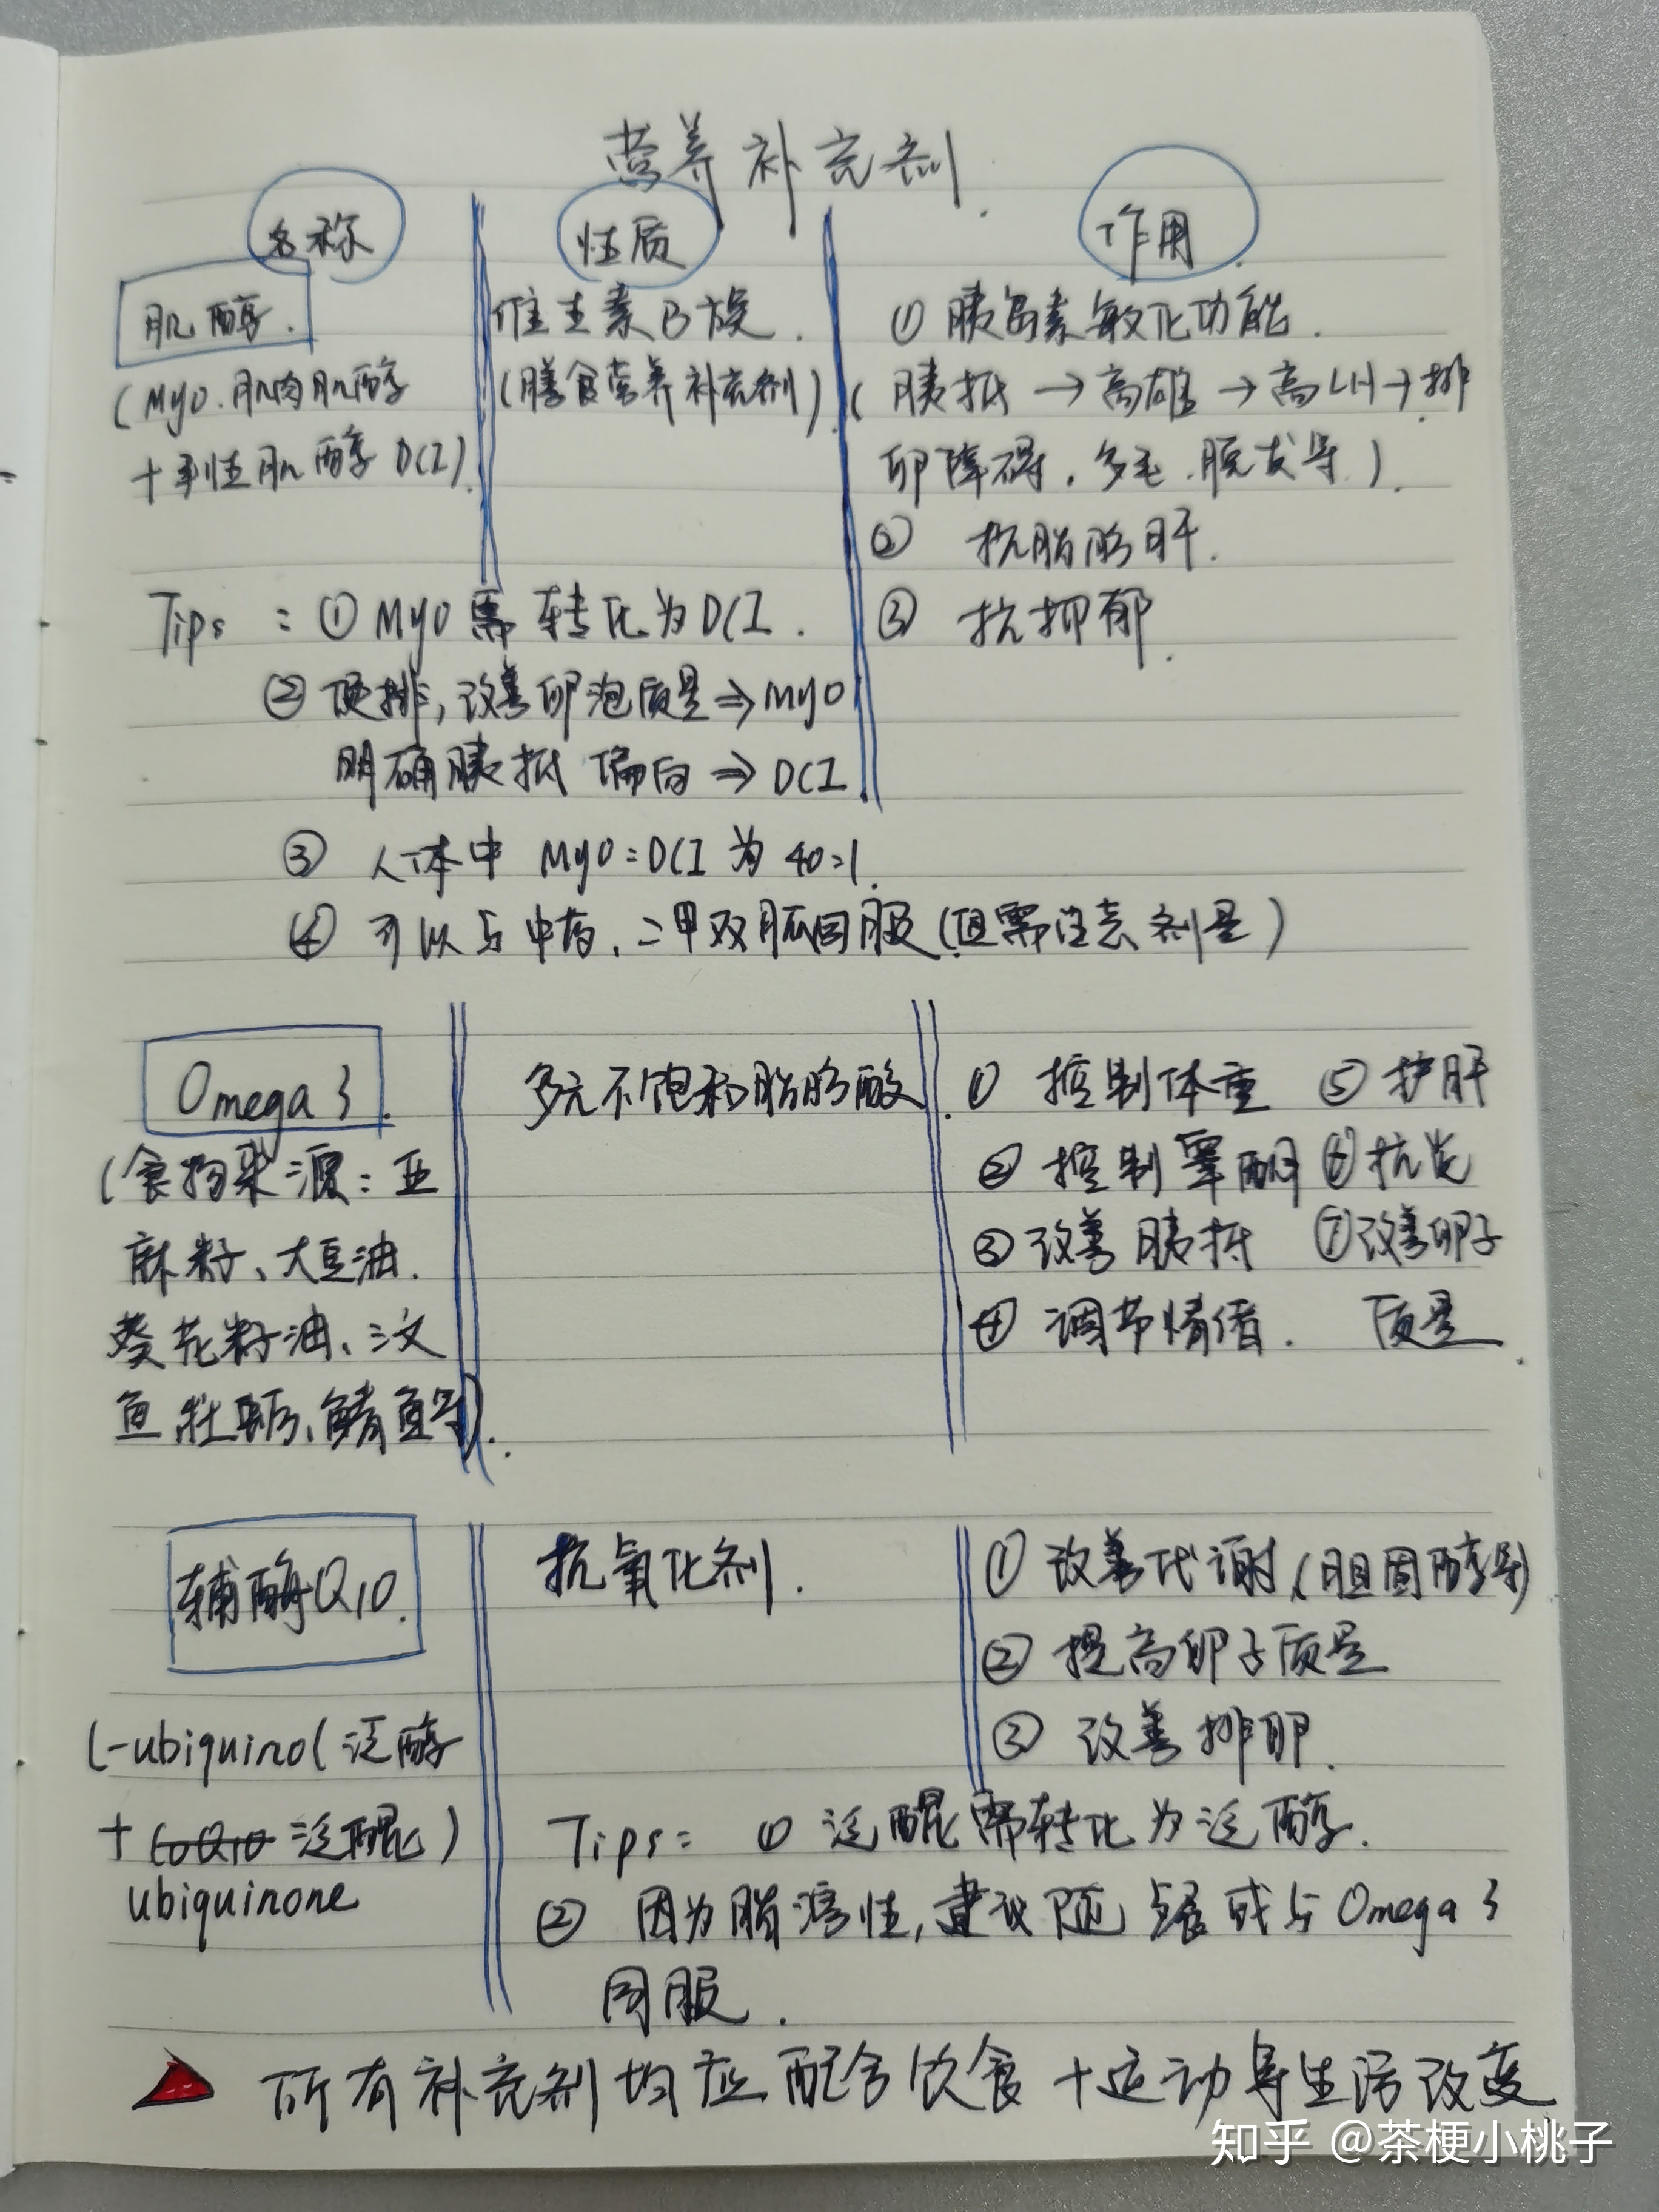 营养补充剂.
名称 性质 作用.
肌醇. 维生素B族. ① 胰岛素敏化功能.
(Myo.肌肉肌醇 (膳食营养补充剂). (胰抵→高雄→高LH→排
+手性肌醇DCI). 卵障碍,多毛.脱发等).
② 抗脂肪肝.
Tips: ① Myo需转化为DCI. ③ 抗抑郁.
② 促排,改善卵泡质量⇒Myo
明确胰抵 偏向⇒DCI
③ 人体中 Myo:DCI 为 40:1.
④ 可以与中药,二甲双胍同服(但需注意剂量)
Omega 3. 多元不饱和脂肪酸. ① 控制体重 ⑤护肝
(食物来源:亚 ② 控制睾酮 ⑥抗炎
麻籽、大豆油. ③改善胰抵 ⑦改善卵子
葵花籽油、三文 ④ 调节情绪. 质量.
鱼.牡蛎、鲭鱼等).
辅酶Q10. 抗氧化剂. ① 改善代谢(胆固醇等)
② 提高卵子质量
(-ubiquinol(泛醇 ③ 改善排卵.
+ CoQ10 泛醌) Tips: ① 泛醌需转化为泛醇.
ubiquinone ② 因为脂溶性,建议随餐或与Omega 3
同服.
所有补充剂均应配合饮食+运动等生活改变
知乎 @茶梗小桃子